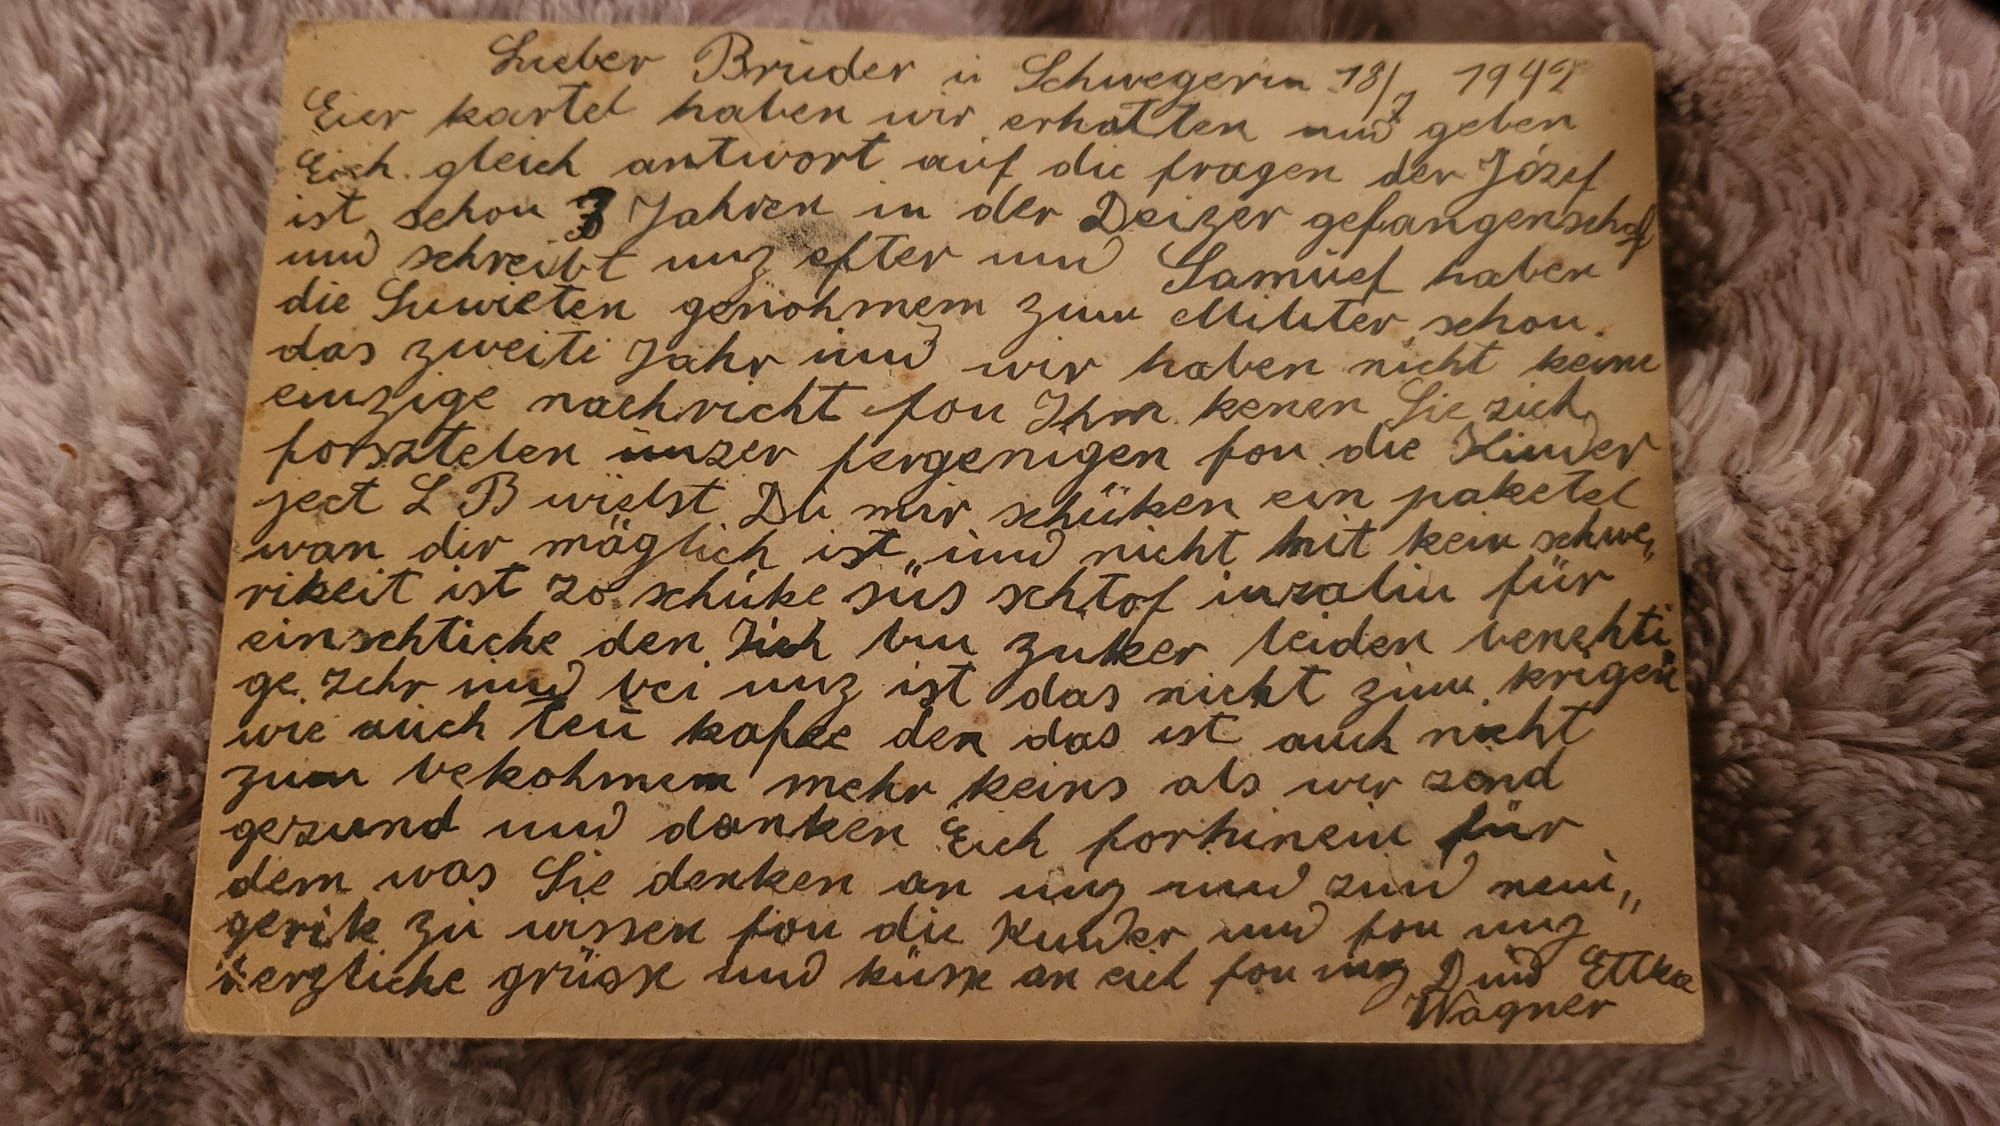 Lieber Brüder ü Schwegerin 18/7 1942
Eier kartel haben wir erhalten und geben
Eich gleich antwort auf die fragen der Józef
ist schon 3 Jahren in der Deizer gefangenschaf
und schreibt unz efter und Samüel haben
die Suwieten genohmem zum Militer schon
das zweiti Jahr und wir haben nicht keine
einzige nachricht fon Ihm kenen Sie zich
forsztelen ünzer fergenigen fon die Kinder
ject L B wielst Du mir schüken ein paketel
wan dir mäglich ist „ und nicht mit kein schwe„
rikeit ist zo schüke süs schtof inzalin für
einschtiche den Iich bin zuker leiden benehti
ge zehr und bei unz ist das nicht zum krigen
wie auch teü kafee den das ist auch nicht
zum bekohmem mehr keins als wir zend
gezund und danken Eich forhinein für
dem was Sie denken an unz und zind neui„
gerik zü wissen fon die Kinder und fon unz
herzliche grüsse und küsse an eich fon unz D und Ettka
Wagner